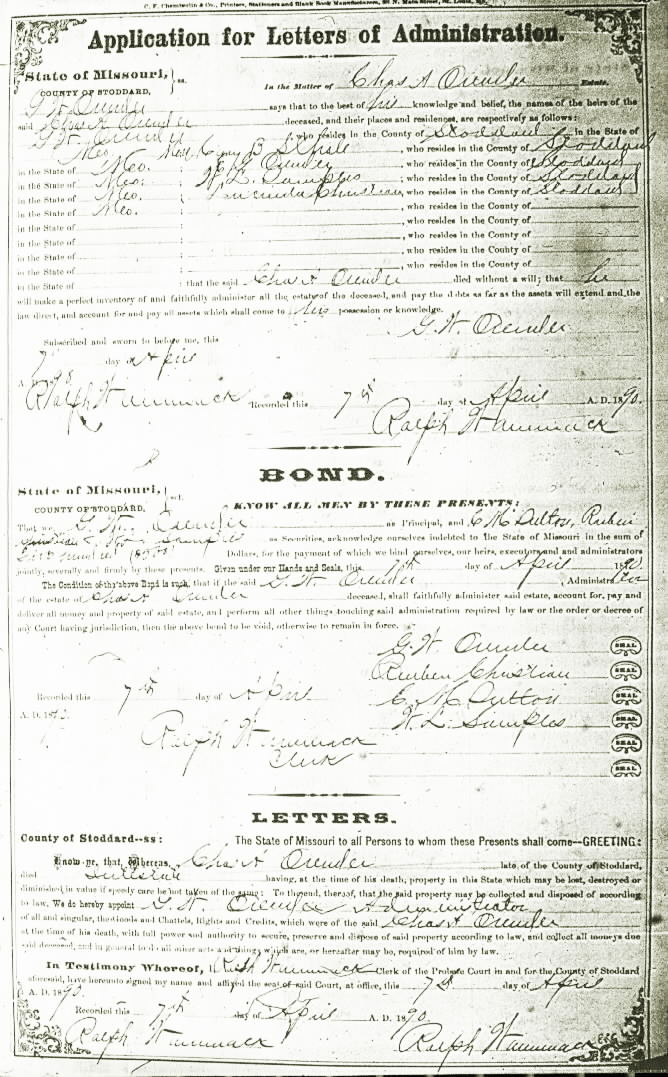 C. F. Chamberlin & Co., Printers, Stationers and Blank Book Manufacturers, N. Main Street, St. Louis,
Application for Letters of Administration.
State of Missouri, } ss.
COUNTY OF STODDARD,
In the Matter of Chas A Crender Estate.
G W Crender says that to the best of his knowledge and belief, the names of the heirs of the
said Chas A Crender deceased, and their places and residences, are respectively as follows:
G W Crender, who resides in the County of Stoddard, in the State of
Mo. B, who resides in the County of Stoddard
in the State of Mo. Crender, who resides in the County of Stoddard
in the State of Mo. W. L. Samples, who resides in the County of Stoddard
in the State of Mo. Christian, who resides in the County of Stoddard
in the State of Mo. , who resides in the County of
in the State of ; , who resides in the County of
in the State of ; , who resides in the County of
in the State of ; , who resides in the County of
in the State of ; , who resides in the County of
in the State of ; that the said Chas A Crender died without a will; that he
will make a perfect inventory of and faithfully administer all the estate of the deceased, and pay the debts as far as the assets will extend and the
law direct, and account for and pay all assets which shall come to his possession or knowledge.
G. W. Crender
Subscribed and sworn to before me, this
7 day of April
A. D. 1890
Ralph Wammack
Recorded this 7th day of April A. D. 1890.
Ralph Wammack
BOND.
State of Missouri, } sct.
COUNTY OF STODDARD,
KNOW ALL MEN BY THESE PRESENTS:
That we, G. W. Crender as Principal, and E M Dutton, Reuben
Christian & W L Samples as Securities, acknowledge ourselves indebted to the State of Missouri in the sum of
Dollars, for the payment of which we bind ourselves, our heirs, executors and administrators
jointly, severally and firmly by these presents. Given under our Hands and Seals, this 7th day of April 1890.
The Condition of the above Bond is such, that if the said G. W Crender, Administrator
of the estate of Chas A Crender deceased, shall faithfully administer said estate, account for, pay and
deliver all money and property of said estate, and perform all other things touching said administration required by law or the order or decree of
any Court having jurisdiction, then the above bond to be void, otherwise to remain in force.
G. W. Crender SEAL
Reuben Christian SEAL
Recorded this 7th day of April
E. M. Dutton SEAL
A. D. 1890.
W. L. Samples SEAL
Ralph Wammack SEAL
Clerk
SEAL
LETTERS.
County of Stoddard--ss:
The State of Missouri to all Persons to whom these Presents shall come--GREETING:
Know ye, that, Whereas, Chas A Crender late of the County of Stoddard,
died Intestate having, at the time of his death, property in this State which may be lost, destroyed or
diminished in value if speedy care be not taken of the same: To the end, thereof, that the said property may be collected and disposed of according
to law, We do hereby appoint G. W Crender Administrator
of all and singular, the Goods and Chattels, Rights and Credits, which were of the said Chas A Crender
at the time of his death, with full power and authority to secure, preserve and dispose of said property according to law, and collect all moneys due
said deceased, and in general to do all other acts and things which are, or hereafter may be, required of him by law.
In Testimony Whereof, I, Ralph Wammack Clerk of the Probate Court in and for the County of Stoddard
aforesaid, have hereunto signed my name and affixed the seal of said Court, at office, this 7th day of April
A. D. 1890.
Recorded this 7th day of April A. D. 1890.
Ralph Wammack
Ralph Wammack